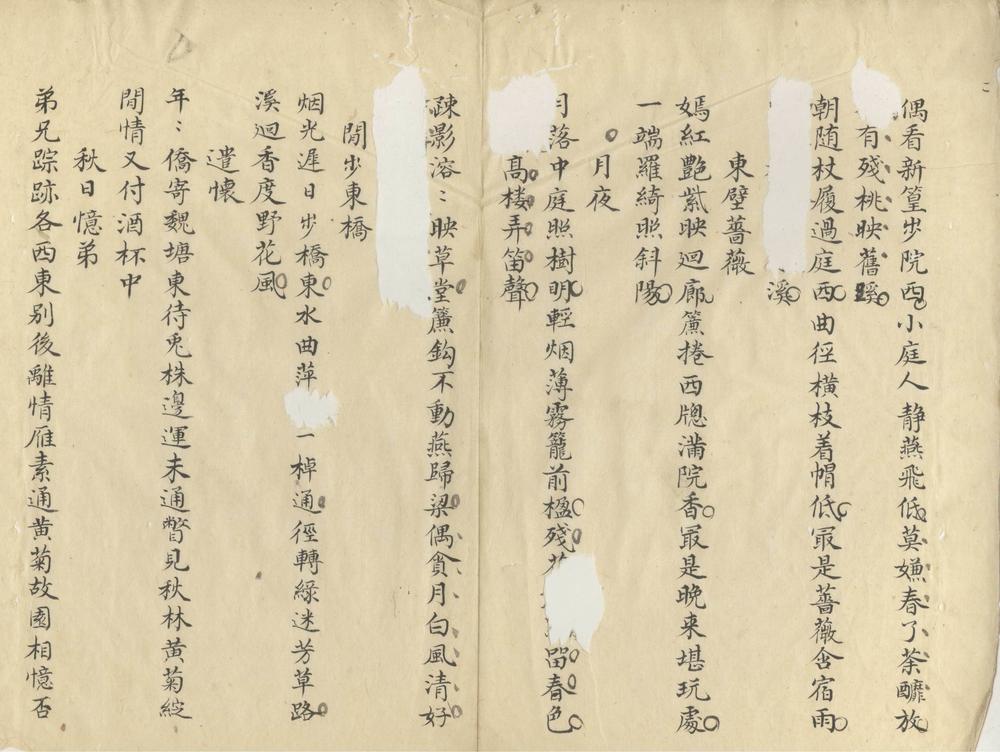 偶看新篁步院西小庭人静燕飛低莫嫌春了荼蘼放
有殘桃映舊蹊
朝随杖履過庭西曲徑橫枝着帽低冣是薔薇含宿雨
溪
東壁薔薇
嫣紅艷紫映迴廊簾捲西牕滿院香冣是晚来堪玩處
一端羅綺照斜陽
月夜
月落中庭照樹明輕烟薄霧籠前楹殘留春色
高楼弄笛聲
疎影溶：映草堂簾鈎不動燕歸梁偶貪月白風清好
閒步東橋
烟光遲日步橋東水曲萍一棹通徑轉綠迷芳草路
溪迴香度野花風
遣懷
年：僑寄魏塘東待兎株邊運未通瞥見秋林黄菊綻
閒情又付酒杯中
秋日憶弟
弟兄踪跡各西東别後離情雁素通黄菊故園相憶否